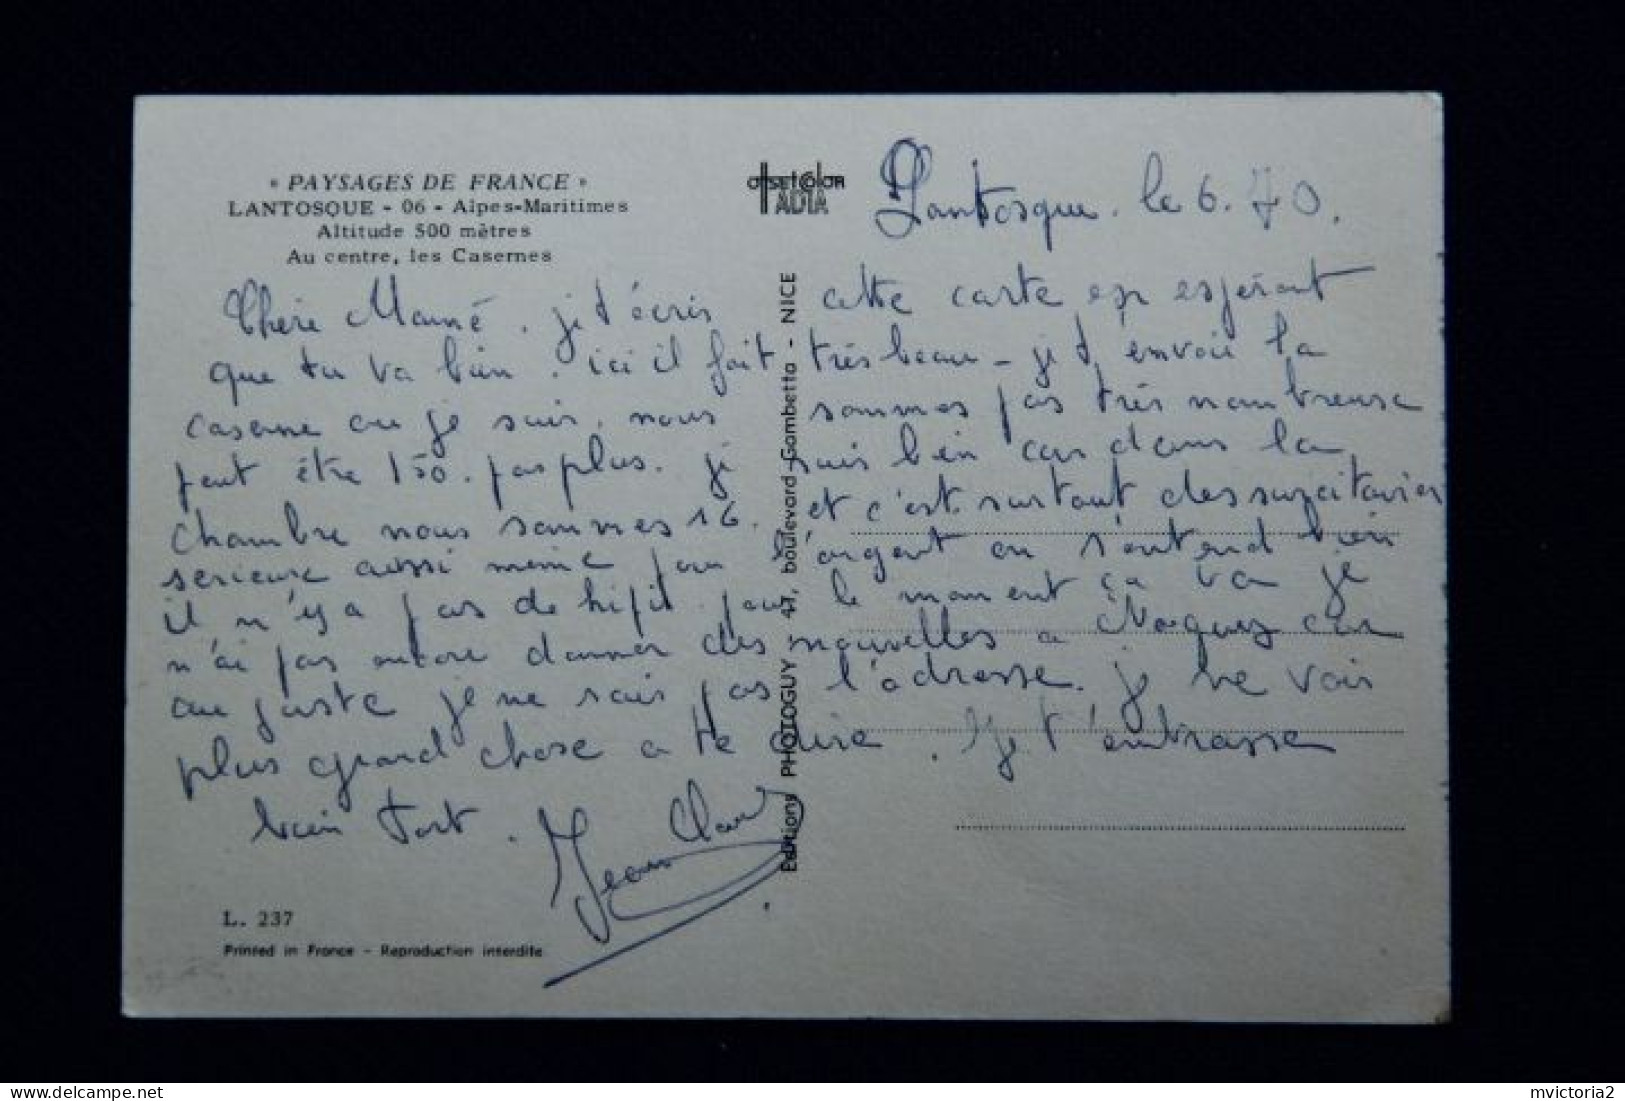 « PAYSAGES DE FRANCE »
LANTOSQUE - 06 - Alpes-Maritimes
Altitude 500 mètres
Au centre, les Casernes
OFFSETCOLOR
ADIA
Lantosque . le 6. 70.
Chère Mamé . je t'écris cette carte en espérant
que tu va bien . ici il fait très beau - je t'envoie la
caserne ou je suis. nous sommes pas très nombreuse
peut être 150. pas plus. je suis bien car dans la
chambre nous sommes 16. et c'est surtout des
serieuse aussi même pour l'argent on s'entend bien
il n'y a pas de pour le moment ça va je
n'ai pas encore donner des nouvelles a car
au juste je ne sais pas l'adresse. je ne vois
plus grand chose a te dire . je t'embrasse
bien fort . Jean Claude
Editions PHOTOGUY 41, boulevard Gambetta - NICE
L. 237
Printed in France - Reproduction interdite
mvictoria2